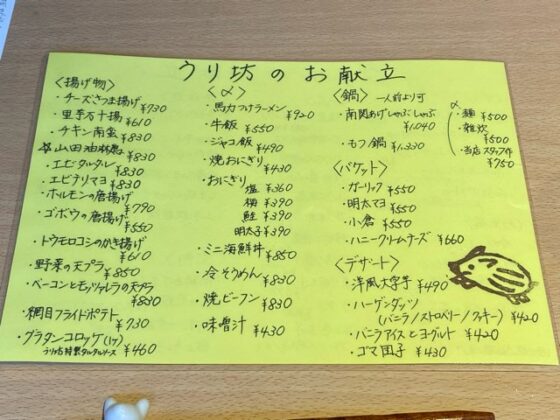 うり坊のお献立
〈揚げ物〉
・チーズさつま揚げ ¥730
・里芋万十揚 ¥610
・チキン南蛮 ¥830
山田油林鶏 ¥830
・エビタルタル ¥830
・エビテリマヨ ¥830
・ホルモンの唐揚げ ¥790
・ゴボウの唐揚げ ¥550
・トウモロコシのかき揚げ ¥610
・野菜の天プラ ¥850
・ベーコンとモッツァレラの天プラ ¥830
・網目フライドポテト ¥730
・グラタンコロッケ(1ケ) ¥460
うり坊特製タルタルソース
〈〆〉
・馬力つけラーメン ¥920
・牛飯 ¥550
・ジャコ飯 ¥490
・焼おにぎり ¥430
・おにぎり
塩 ¥360
梅 ¥390
鮭 ¥390
明太子 ¥390
・ミニ海鮮丼 ¥850
・冷そうめん ¥830
・焼ビーフン ¥830
・味噌汁 ¥430
〈鍋〉 一人前より可
・南関あげしゃぶしゃぶ ¥1,040
・もつ鍋 ¥1,330
〆
・麺 ¥500
・雑炊 ¥500
・当店スタッフ牛 ¥750
〈バケット〉
・ガーリック ¥550
・明太マヨ ¥550
・小倉 ¥550
・ハニークリームチーズ ¥660
〈デザート〉
・洋風大学芋 ¥490
・ハーゲンダッツ
(バニラ/ストロベリー/クッキー) ¥420
・バニラアイスとヨーグルト ¥420
・ゴマ団子 ¥430